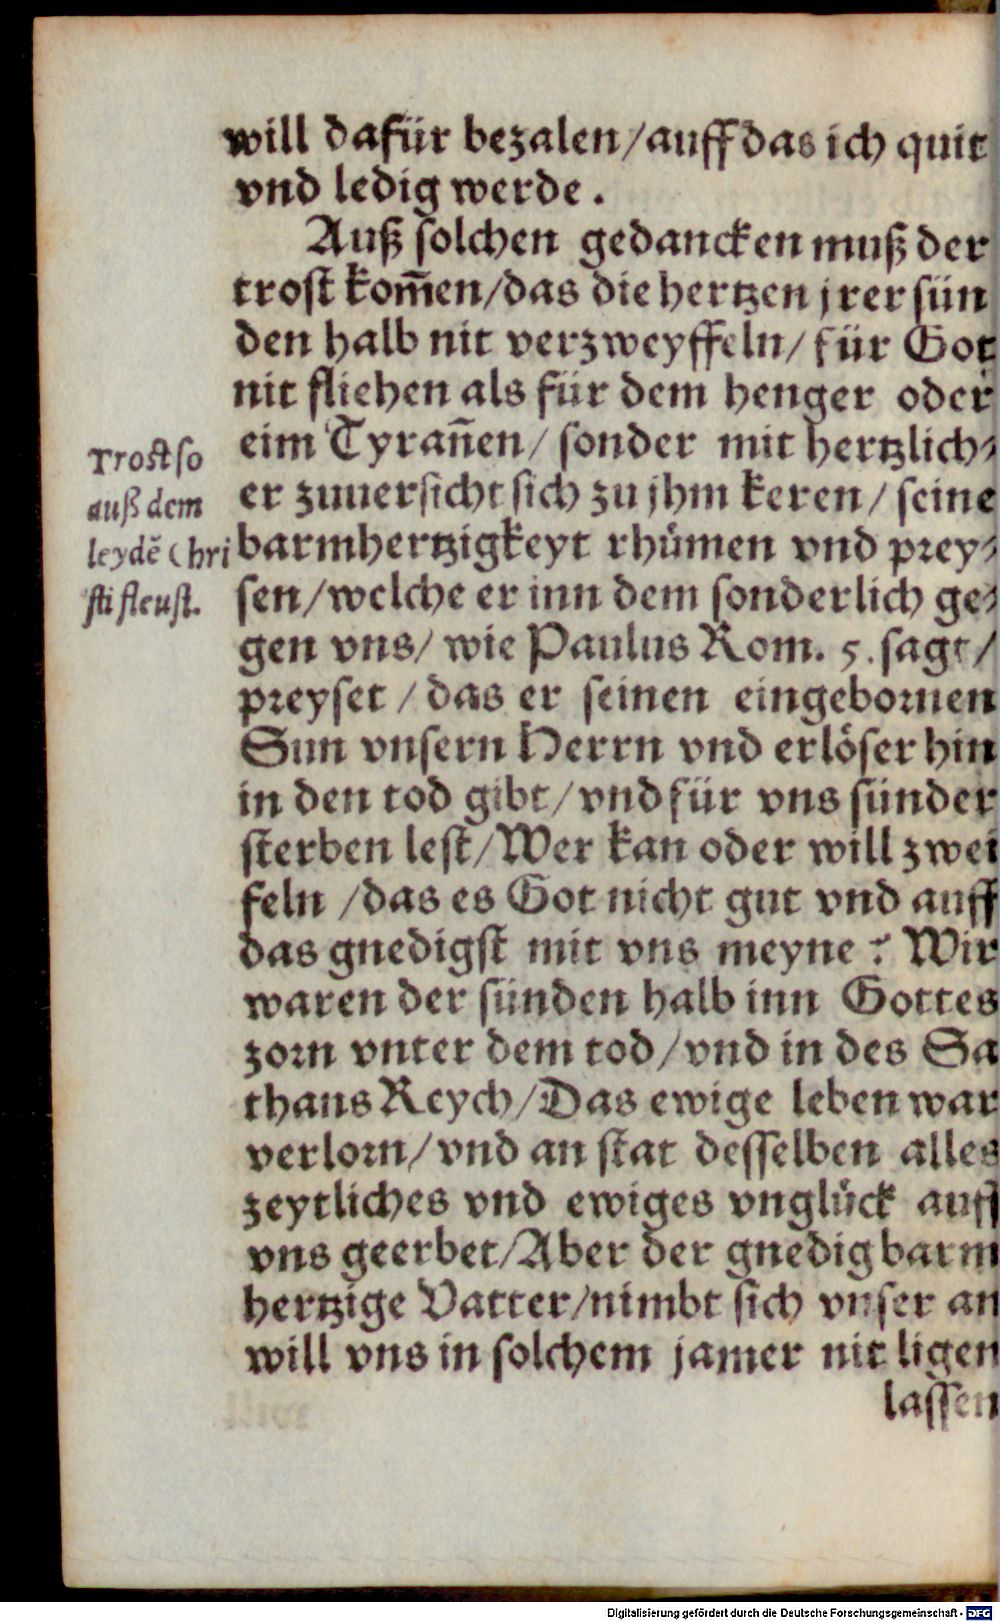 will dafür bezalen/auff das ich quit
vnd ledig werde.
Auß solchen gedancken muß der
trost kom̃en/das die hertzen jrer sün
den halb nit verzweyffeln/für Got
nit fliehen als für dem henger oder
eim Tyrañen/sonder mit hertzlich⸗
er zuuersicht sich zu jhm keren/seine
barmhertzigkeyt rhümen vnd prey⸗
sen/welche er inn dem sonderlich ge⸗
gen vns/wie Paulus Rom. 5. sagt/
preyset/das er seinen eingebornen
Sun vnsern Herrn vnd erlöser hin
in den tod gibt/vnd für vns sünder
sterben lest/Wer kan oder will zwei
feln/das es Got nicht gut vnd auff
das gnedigst mit vns meyne? Wir
waren der sünden halb inn Gottes
zorn vnter dem tod/vnd in des Sa
thans Reych/Das ewige leben war
verlorn/vnd an stat desselben alles
zeytliches vnd ewiges vnglück auff
vns geerbet/Aber der gnedig barm
hertzige Vatter/nimbt sich vnser an
will vns in solchem jamer nit ligen
lassen
Trost so
auß dem
leydẽ Chri
sti fleust.
Digitalisierung gefördert durch die Deutsche Forschungsgemeinschaft - DFG